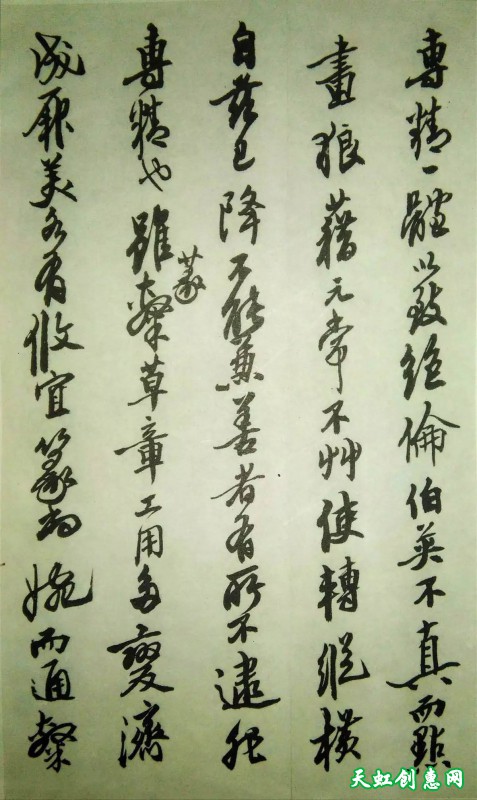 專精一體以致絕倫伯英不真而點
畫狼藉元常不艸使轉縱橫
自茲已降不能兼善者有所不逮非
專精也雖篆隸草章工用多變濟
成厥美各有攸宜篆尚婉而通隸
天虹创惠网